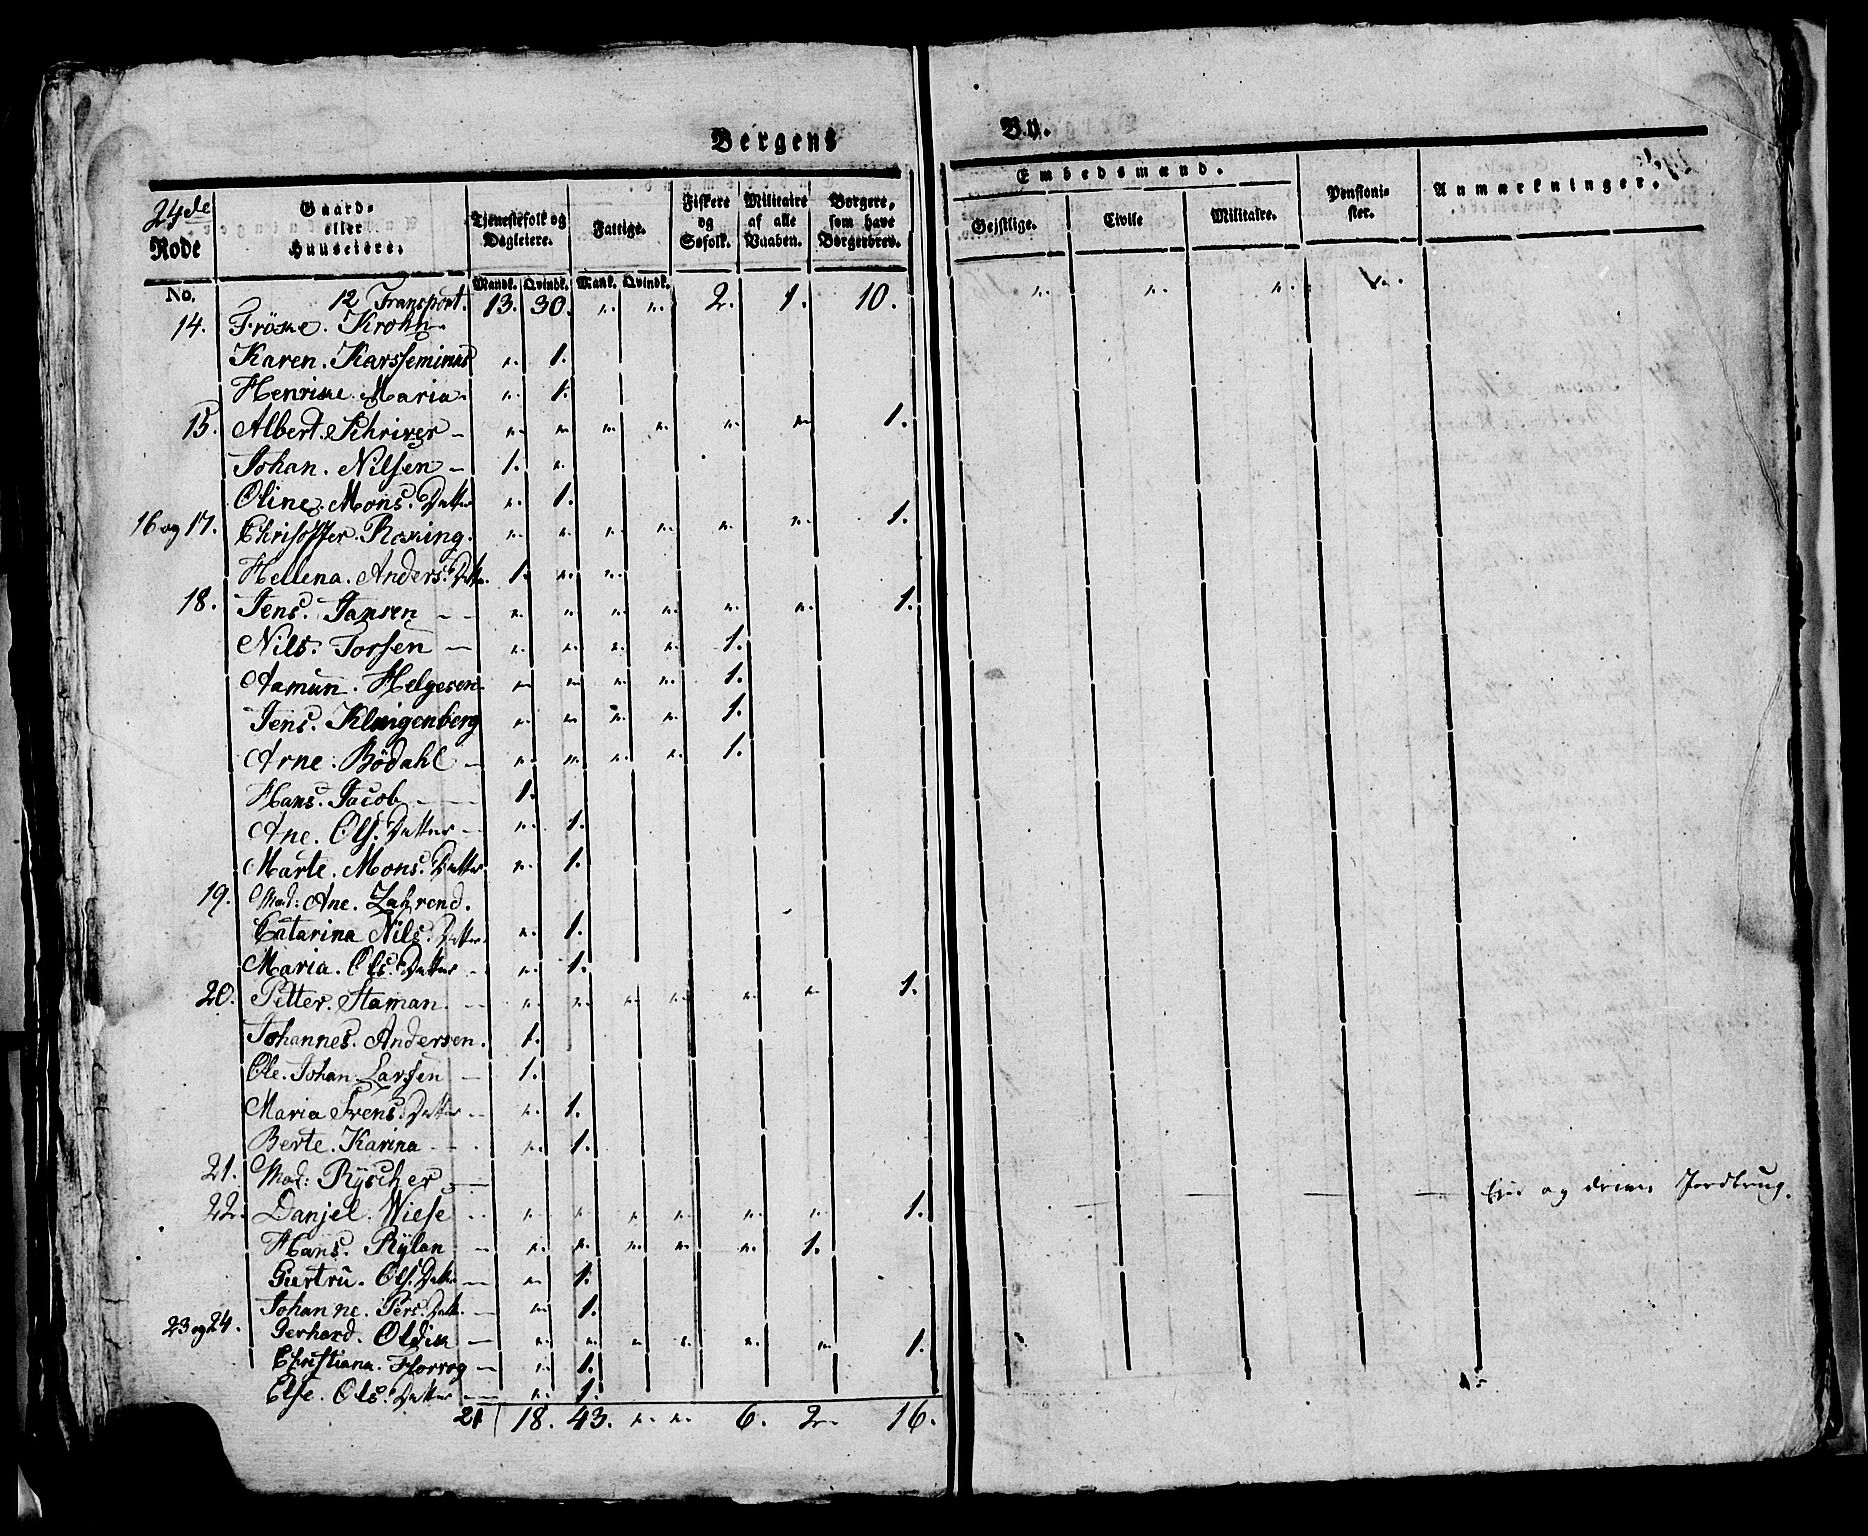 Bergens By.
24de Rode
Gaard- eller Huuseiere.
Tjenestefolk og Dagleiere.
Fattige.
Fiskere og Søfolk.
Militaire af alle Vaaben.
Borgere, som have Borgerbrev.
Embedsmænd.
Gejstlige. Civile Militaire.
Pensionister.
Anmærkninger.
No. Mandk. Qvindk. Mank. Qvindk.
12 Transport. 13. 30. " " 2. 1. 10. " " " "
14. Fröke. Krohn.
Karen. Karsseminus " 1.
Henrike. Maria. " 1.
15. Albert. Schriver - " " " " " " 1.
Johan. Nilsen - 1. "
Oline. Mons. Datter " 1.
16 og 17. Chrisoffer. Roning. " " " " " " 1.
Hellena. Anders. Datr. 1. " "
18. Jens. Jansen - - " " " " " " 1.
Nils. Torsen - " " " " 1.
Aamun. Helgesen " " " " 1.
Jens. Klingenberg " " " " 1.
Arne. Bödahl - " " " " 1.
Hans. Jacob - - 1.
Ane. Ols. Datter - " 1.
Marte. Mons. Datter. " 1.
19. Mad: Ane. Zahrend.
Catarina Nils. Datter. " 1.
Maria. Ols. Datter - " 1.
20. Pitter. Staman - " " " " " " 1.
Johannes. Andersen. 1.
Ole. Johan. Larsen - 1.
Maria Svens. Datter - " 1.
Berte. Karina - - " 1.
21. Mad: Ryscher - Eier og driver Jordbrug.
22. Danjel. Wiese - " " " " " " 1.
Hans. Rylan - " " " " " 1.
Gertru. Ols. Datter - " 1.
Johanne. Pers. Datt. - " 1.
23 og 24. Gerhard. Oldin - " " " " " " 1.
Christiana. Horrog - " 1.
Else. Ols. Datter - " 1.
21 18. 43. " " 6. 2. 16.